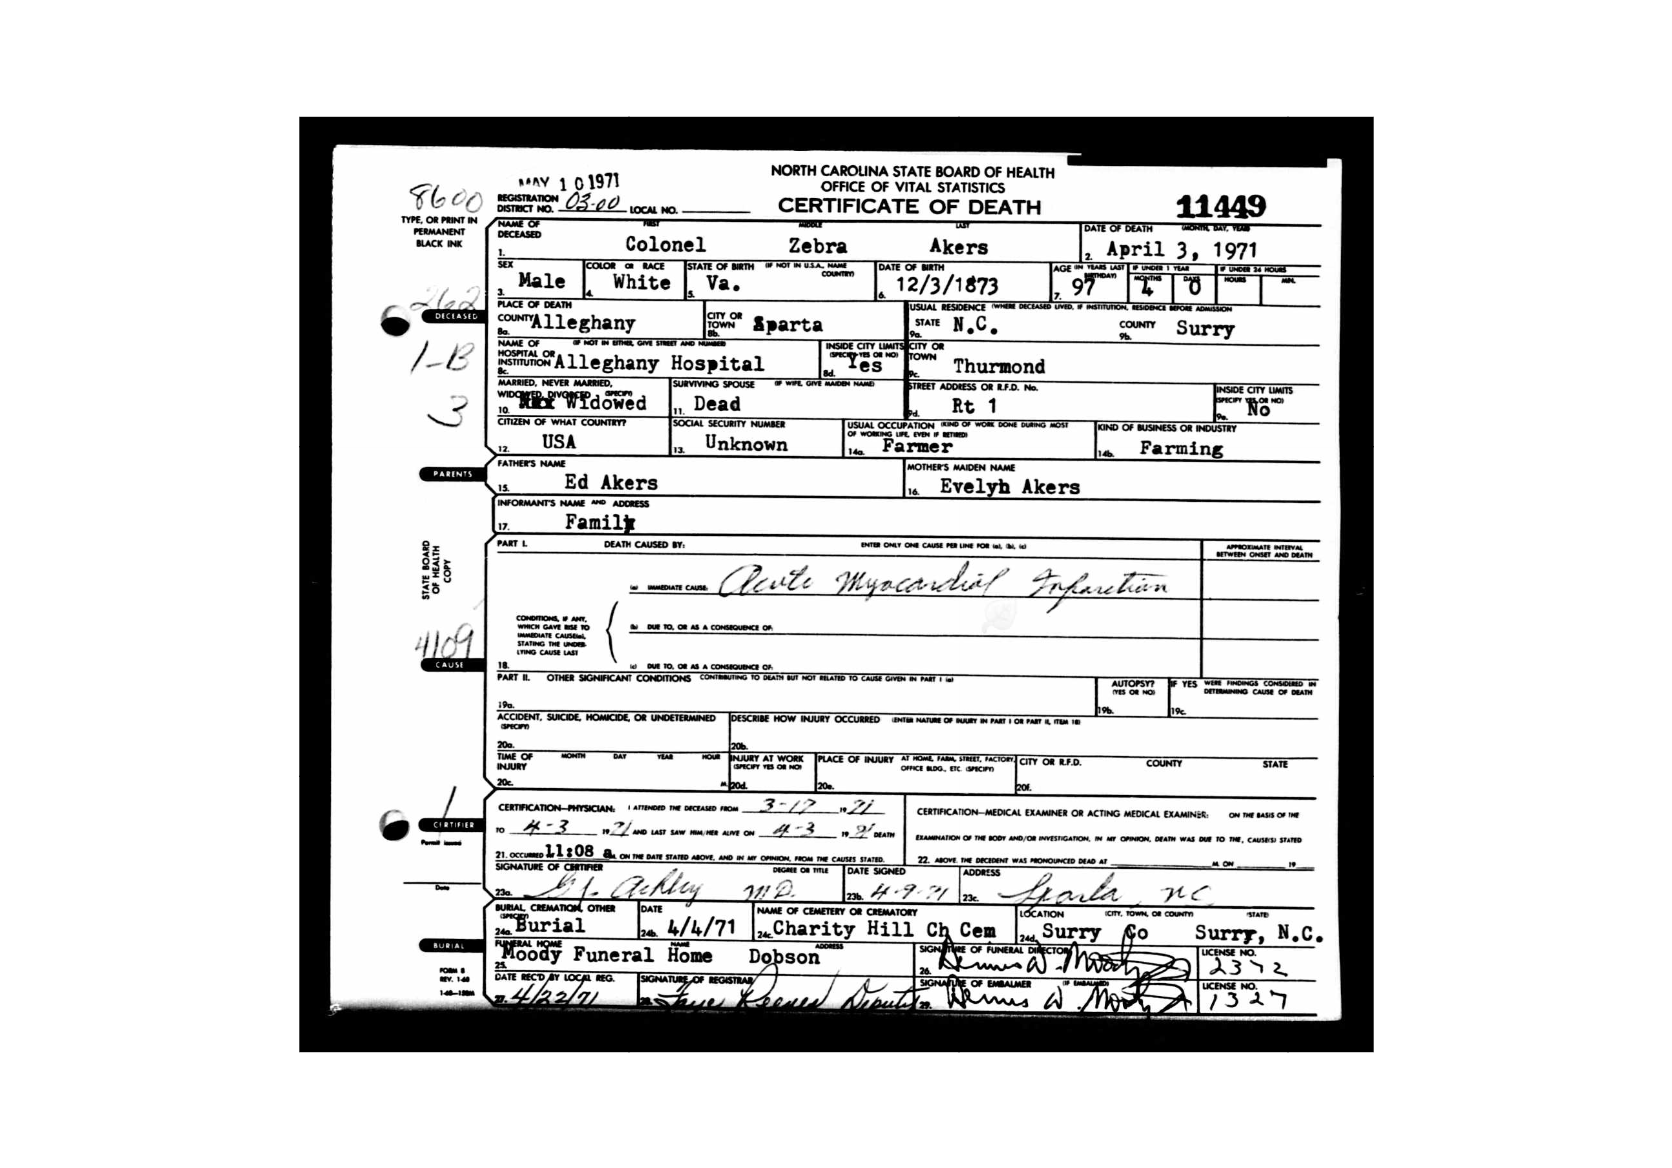 NORTH CAROLINA STATE BOARD OF HEALTH
OFFICE OF VITAL STATISTICS
CERTIFICATE OF DEATH
11449
MAY 10 1971
8600
REGISTRATION DISTRICT NO. 03-00 LOCAL NO.
TYPE, OR PRINT IN PERMANENT BLACK INK
NAME OF DECEASED FIRST MIDDLE LAST
1. Colonel Zebra Akers
DATE OF DEATH (MONTH, DAY, YEAR)
2. April 3, 1971
SEX
3. Male
COLOR OR RACE
4. White
STATE OF BIRTH (IF NOT IN U.S.A., NAME COUNTRY)
5. Va.
DATE OF BIRTH
6. 12/3/1873
AGE (IN YEARS LAST BIRTHDAY)
7. 97
IF UNDER 1 YEAR
MONTHS 4 DAYS 0
IF UNDER 24 HOURS
HOURS MIN.
262
DECEASED
PLACE OF DEATH
COUNTY Alleghany
8a.
CITY OR TOWN Sparta
8b.
USUAL RESIDENCE (WHERE DECEASED LIVED, IF INSTITUTION, RESIDENCE BEFORE ADMISSION
STATE N.C.
9a.
COUNTY Surry
9b.
1-B
NAME OF HOSPITAL OR INSTITUTION (IF NOT IN EITHER, GIVE STREET AND NUMBER)
8c. Alleghany Hospital
INSIDE CITY LIMITS (SPECIFY YES OR NO)
8d. Yes
CITY OR TOWN
9c. Thurmond
3
MARRIED, NEVER MARRIED, WIDOWED, DIVORCED (SPECIFY)
10. Widowed
SURVIVING SPOUSE (IF WIFE, GIVE MAIDEN NAME)
11. Dead
STREET ADDRESS OR R.F.D. No.
9d. Rt 1
INSIDE CITY LIMITS (SPECIFY YES OR NO)
9e. No
CITIZEN OF WHAT COUNTRY?
12. USA
SOCIAL SECURITY NUMBER
13. Unknown
USUAL OCCUPATION (KIND OF WORK DONE DURING MOST OF WORKING LIFE, EVEN IF RETIRED)
14a. Farmer
KIND OF BUSINESS OR INDUSTRY
14b. Farming
PARENTS
FATHER'S NAME
15. Ed Akers
MOTHER'S MAIDEN NAME
16. Evelyn Akers
INFORMANT'S NAME AND ADDRESS
17. Family
STATE BOARD OF HEALTH COPY
PART I. DEATH CAUSED BY: ENTER ONLY ONE CAUSE PER LINE FOR (a), (b), (c)
APPROXIMATE INTERVAL BETWEEN ONSET AND DEATH
(a) IMMEDIATE CAUSE: Acute Myocardial Infarction
CONDITIONS, IF ANY, WHICH GAVE RISE TO IMMEDIATE CAUSE(a), STATING THE UNDERLYING CAUSE LAST
(b) DUE TO, OR AS A CONSEQUENCE OF:
4109
CAUSE
18.
(c) DUE TO, OR AS A CONSEQUENCE OF:
PART II. OTHER SIGNIFICANT CONDITIONS CONTRIBUTING TO DEATH BUT NOT RELATED TO CAUSE GIVEN IN PART I (a)
19a.
AUTOPSY? (YES OR NO)
19b.
IF YES WERE FINDINGS CONSIDERED IN DETERMINING CAUSE OF DEATH
19c.
ACCIDENT, SUICIDE, HOMICIDE, OR UNDETERMINED (SPECIFY)
20a.
DESCRIBE HOW INJURY OCCURRED (ENTER NATURE OF INJURY IN PART I OR PART II, ITEM 18)
20b.
TIME OF INJURY MONTH DAY YEAR HOUR
20c. M.
INJURY AT WORK (SPECIFY YES OR NO)
20d.
PLACE OF INJURY AT HOME, FARM, STREET, FACTORY, OFFICE BLDG., ETC. (SPECIFY)
20e.
CITY OR R.F.D. COUNTY STATE
20f.
CERTIFIER
Permit issued
Date
CERTIFICATION—PHYSICIAN: I ATTENDED THE DECEASED FROM 3-17 1971
TO 4-3 1971 AND LAST SAW HIM/HER ALIVE ON 4-3 1971 DEATH
21. OCCURRED 11:08 a.M. ON THE DATE STATED ABOVE, AND IN MY OPINION, FROM THE CAUSES STATED.
CERTIFICATION—MEDICAL EXAMINER OR ACTING MEDICAL EXAMINER: ON THE BASIS OF THE
EXAMINATION OF THE BODY AND/OR INVESTIGATION, IN MY OPINION, DEATH WAS DUE TO THE, CAUSE(S) STATED
22. ABOVE. THE DECEDENT WAS PRONOUNCED DEAD AT M. ON 19
SIGNATURE OF CERTIFIER DEGREE OR TITLE
23a. Ashley M.D.
DATE SIGNED
23b. 4-9-71
ADDRESS
23c. Sparta NC
BURIAL
BURIAL, CREMATION, OTHER (SPECIFY)
24a. Burial
DATE
24b. 4/4/71
NAME OF CEMETERY OR CREMATORY
24c. Charity Hill Ch Cem
LOCATION (CITY, TOWN, OR COUNTY) (STATE)
24d. Surry Co Surry, N.C.
FUNERAL HOME NAME ADDRESS
25. Moody Funeral Home Dobson
SIGNATURE OF FUNERAL DIRECTOR
26. Dennis W. Moody
LICENSE NO.
2372
FORM 8
REV. 1-68
DATE REC'D BY LOCAL REG.
27. 4/22/71
SIGNATURE OF REGISTRAR
28. Faye Reeves Deputy
SIGNATURE OF EMBALMER (IF EMBALMED)
29. Dennis W. Moody
LICENSE NO.
1327